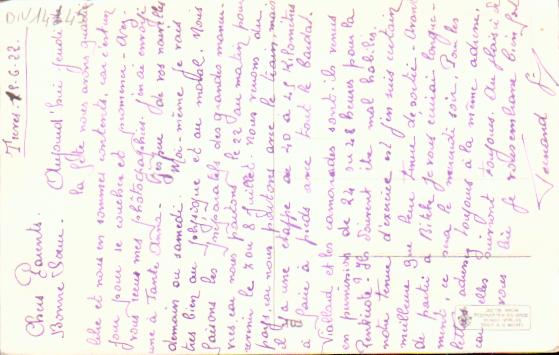 DIV 14 45
Trèves 19.6.22.
Chers Parents.
Bonne Soeur. Aujourd'hui jeudi
la fête nous avons quartier
libre et nous en sommes contents, car c'est un
jour pour se coucher et promener. Avez
vous reçu mes photographies. J'en ai envoyé
une à Tante
J'espère de vos nouvelles
demain ou samedi. Moi-même je vais
très bien au physique et au moral. Nous
faisons les préparatifs des grandes manoeu-
vres car nous partons le 22 au matin pour
revenir le 7 ou 8 Juillet. Nous verrons du
pays, car nous profitons avec le train, mais
il y a une étape de 40 à 45 Kilomètres
à faire à pieds avec tout le
et les camarades sont-ils venus
en permission de 24 ou 48 heures pour la
Pentecôte. Ils doivent être mal habillés.
notre tenue d'exercice est j'en suis certain
meilleure que leur tenue de sortie. Avant
de partir à Bitche je vous écrirai longue-
ment, ce sera le mercredi soir. Pour les
lettres adressez toujours à la même adresse
car elles suivront toujours. Au plaisir de
vous lire je vous embrasse bien fort
Fernand